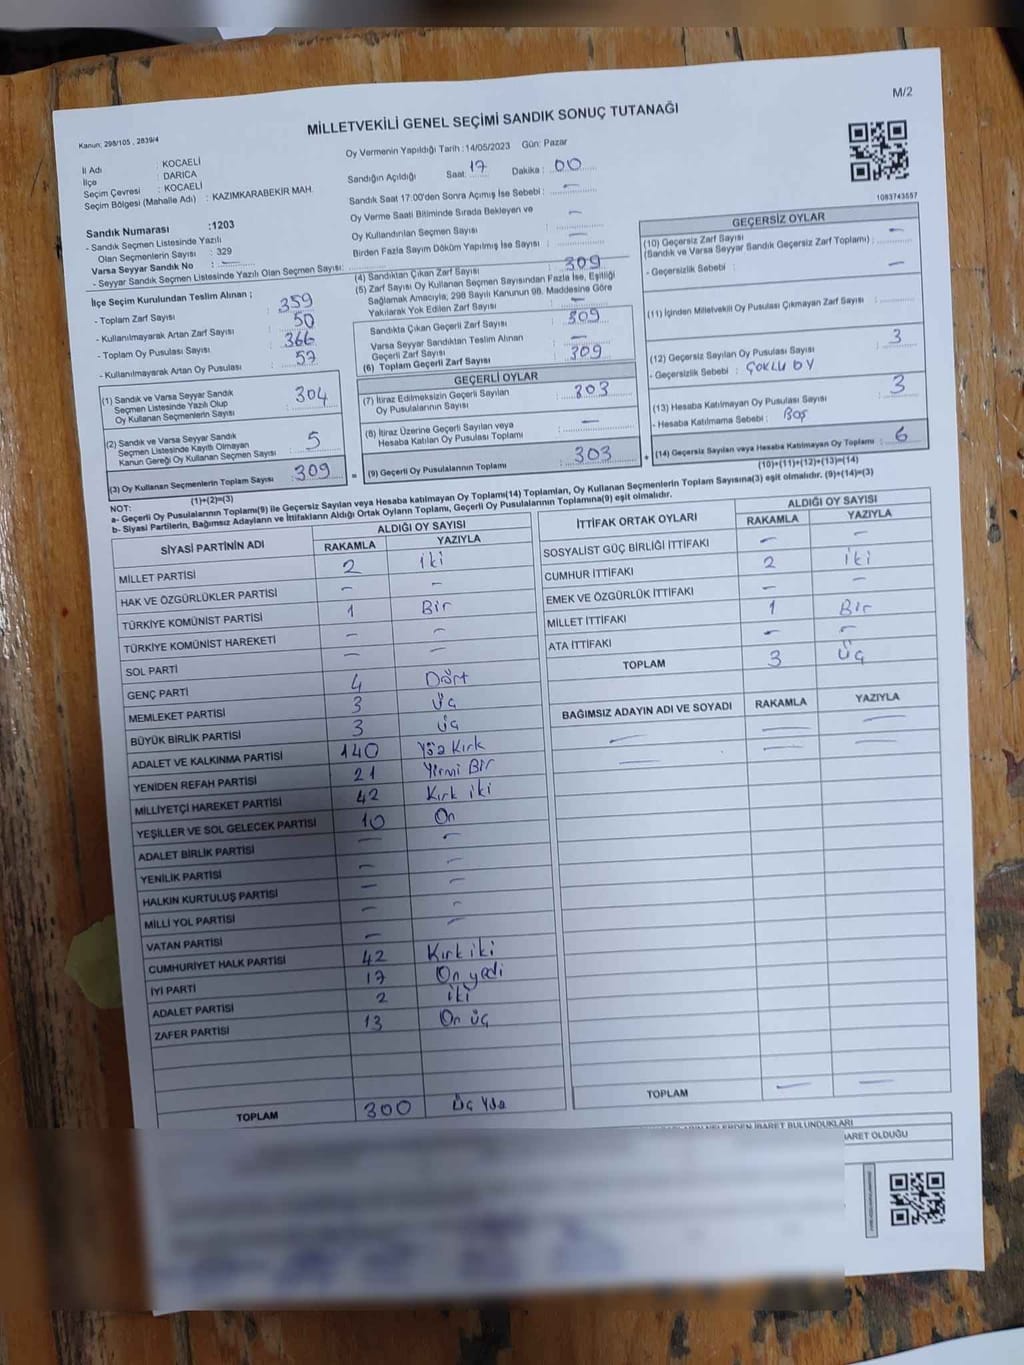 M/2
MİLLETVEKİLİ GENEL SEÇİMİ SANDIK SONUÇ TUTANAĞI
Kanun: 298/105 , 2839/4
İl Adı : KOCAELİ
İlçe : DARICA
Seçim Çevresi : KOCAELİ
Seçim Bölgesi (Mahalle Adı) : KAZIMKARABEKİR MAH.
Sandık Numarası :1203
- Sandık Seçmen Listesinde Yazılı
Olan Seçmenlerin Sayısı : 329
Varsa Seyyar Sandık No : –
- Seyyar Sandık Seçmen Listesinde Yazılı Olan Seçmen Sayısı:
Oy Vermenin Yapıldığı Tarih :14/05/2023 Gün: Pazar
Sandığın Açıldığı Saat: 17 Dakika : 00
Sandık Saat 17.00'den Sonra Açımış İse Sebebi : –
Oy Verme Saati Bitiminde Sırada Bekleyen ve
Oy Kullandırılan Seçmen Sayısı –
Birden Fazla Sayım Döküm Yapılmış İse Sayısı –
1083743557
İlçe Seçim Kurulundan Teslim Alınan ;
- Toplam Zarf Sayısı : 359
- Kullanılmayarak Artan Zarf Sayısı : 50
- Toplam Oy Pusulası Sayısı : 366
- Kullanılmayarak Artan Oy Pusulası : 57
(1) Sandık ve Varsa Seyyar Sandık
Seçmen Listesinde Yazılı Olup
Oy Kullanan Seçmenlerin Sayısı : 304
(2) Sandık ve Varsa Seyyar Sandık
Seçmen Listesinde Kayıtlı Olmayan
Kanun Gereği Oy Kullanan Seçmen Sayısı : 5
(3) Oy Kullanan Seçmenlerin Toplam Sayısı : 309
(1)+(2)=(3)
(4) Sandıktan Çıkan Zarf Sayısı : 309
(5) Zarf Sayısı Oy Kullanan Seçmen Sayısından Fazla İse, Eşitliği
Sağlamak Amacıyla, 298 Sayılı Kanunun 98. Maddesine Göre
Yakılarak Yok Edilen Zarf Sayısı : –
Sandıkta Çıkan Geçerli Zarf Sayısı : 309
Varsa Seyyar Sandıktan Teslim Alınan
Geçerli Zarf Sayısı : –
(6) Toplam Geçerli Zarf Sayısı : 309
GEÇERLİ OYLAR
(7) İtiraz Edilmeksizin Geçerli Sayılan
Oy Pusulalarının Sayısı : 303
(8) İtiraz Üzerine Geçerli Sayılan veya
Hesaba Katılan Oy Pusulası Toplamı : –
= (9) Geçerli Oy Pusulalarının Toplamı : 303
GEÇERSİZ OYLAR
(10) Geçersiz Zarf Sayısı
(Sandık ve Varsa Seyyar Sandık Geçersiz Zarf Toplamı) : –
- Geçersizlik Sebebi : –
(11) İçinden Milletvekili Oy Pusulası Çıkmayan Zarf Sayısı :
(12) Geçersiz Sayılan Oy Pusulası Sayısı : 3
- Geçersizlik Sebebi : ÇOKLU OY
(13) Hesaba Katılmayan Oy Pusulası Sayısı : 3
- Hesaba Katılmama Sebebi : Boş
+ (14) Geçersiz Sayılan veya Hesaba Katılmayan Oy Toplamı : 6
(10)+(11)+(12)+(13)=(14)
NOT:
a- Geçerli Oy Pusulalarının Toplamı(9) ile Geçersiz Sayılan veya Hesaba katılmayan Oy Toplamı(14) Toplamları, Oy Kullanan Seçmenlerin Toplam Sayısına(3) eşit olmalıdır. (9)+(14)=(3)
b- Siyasi Partilerin, Bağımsız Adayların ve İttifakların Aldığı Ortak Oyların Toplamı, Geçerli Oy Pusulalarının Toplamına(9) eşit olmalıdır.
SİYASİ PARTİNİN ADI ALDIĞI OY SAYISI
RAKAMLA YAZIYLA
MİLLET PARTİSİ 2 iki
HAK VE ÖZGÜRLÜKLER PARTİSİ – –
TÜRKİYE KOMÜNİST PARTİSİ 1 Bir
TÜRKİYE KOMÜNİST HAREKETİ – –
SOL PARTİ – –
GENÇ PARTİ 4 Dört
MEMLEKET PARTİSİ 3 üç
BÜYÜK BİRLİK PARTİSİ 3 üç
ADALET VE KALKINMA PARTİSİ 140 Yüz Kırk
YENİDEN REFAH PARTİSİ 21 Yirmi Bir
MİLLİYETÇİ HAREKET PARTİSİ 42 Kırk iki
YEŞİLLER VE SOL GELECEK PARTİSİ 10 On
ADALET BİRLİK PARTİSİ – –
YENİLİK PARTİSİ – –
HALKIN KURTULUŞ PARTİSİ – –
MİLLİ YOL PARTİSİ – –
VATAN PARTİSİ – –
CUMHURİYET HALK PARTİSİ 42 Kırk iki
İYİ PARTİ 17 On yedi
ADALET PARTİSİ 2 iki
ZAFER PARTİSİ 13 On üç
TOPLAM 300 Üç Yüz
İTTİFAK ORTAK OYLARI ALDIĞI OY SAYISI
RAKAMLA YAZIYLA
SOSYALİST GÜÇ BİRLİĞİ İTTİFAKI – –
CUMHUR İTTİFAKI 2 iki
EMEK VE ÖZGÜRLÜK İTTİFAKI – –
MİLLET İTTİFAKI 1 Bir
ATA İTTİFAKI – –
TOPLAM 3 Üç
BAĞIMSIZ ADAYIN ADI VE SOYADI RAKAMLA YAZIYLA
– – –
– – –
TOPLAM – –
İBARET BULUNDUKLARI
İBARET OLDUĞU